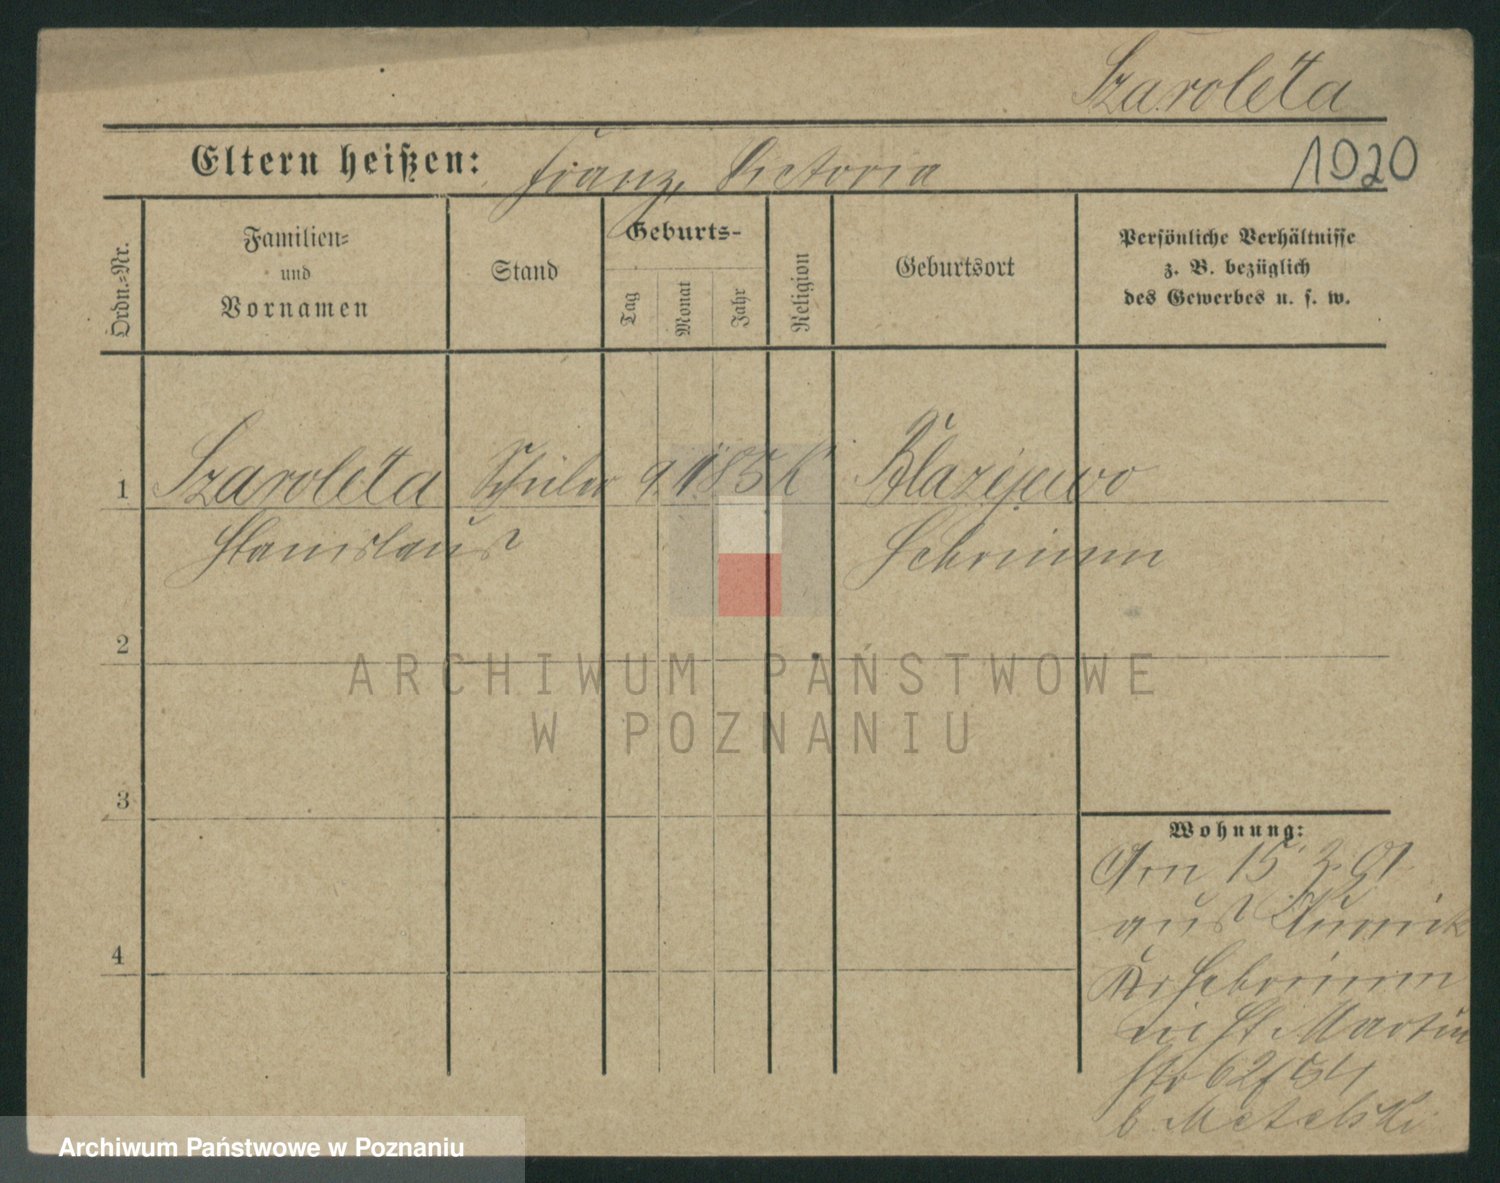 Szaroleta
Eltern heißen: Franz, Victoria
1920
Ordn.-Nr.
Familien-
und
Vornamen
Stand
Geburts-
Tag
Monat
Jahr
Religion
Geburtsort
Persönliche Verhältnisse
z. B. bezüglich
des Gewerbes u. s. w.
1 Szaroleta Schüler 9. 185 K Blazejewo
Stanislaus Schrimm
2
ARCHIWUM PAŃSTWOWE
W POZNANIU
3
Wohnung:
Am 15 2. 91
aus Kurnik
4
Kr Schrimm
St. Martin
Str 62
b Metelski
Archiwum Państwowe w Poznaniu